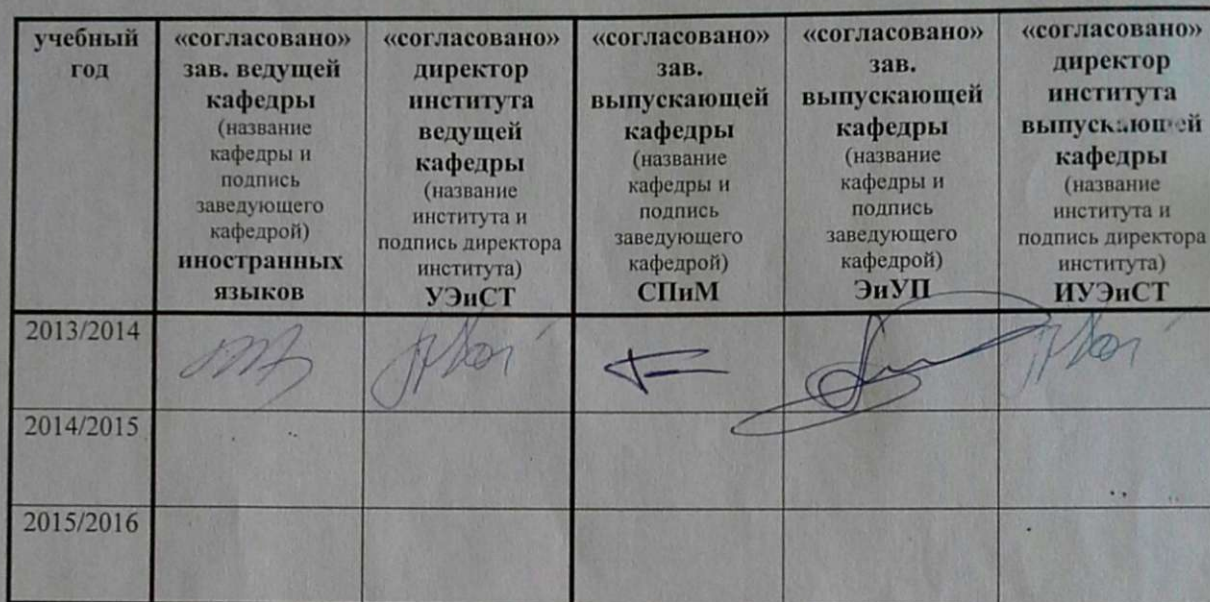 учебный
год
«согласовано»
зав. ведущей
кафедры
(название
кафедры и
подпись
заведующего
кафедрой)
иностранных
языков
«согласовано»
директор
института
ведущей
кафедры
(название
института и
подпись директора
института)
УЭиСТ
«согласовано»
зав.
выпускающей
кафедры
(название
кафедры и
подпись
заведующего
кафедрой)
СПиМ
«согласовано»
зав.
выпускающей
кафедры
(название
кафедры и
подпись
заведующего
кафедрой)
ЭиУП
«согласовано»
директор
института
выпускающей
кафедры
(название
института и
подпись директора
института)
ИУЭиСТ
2013/2014
2014/2015
2015/2016